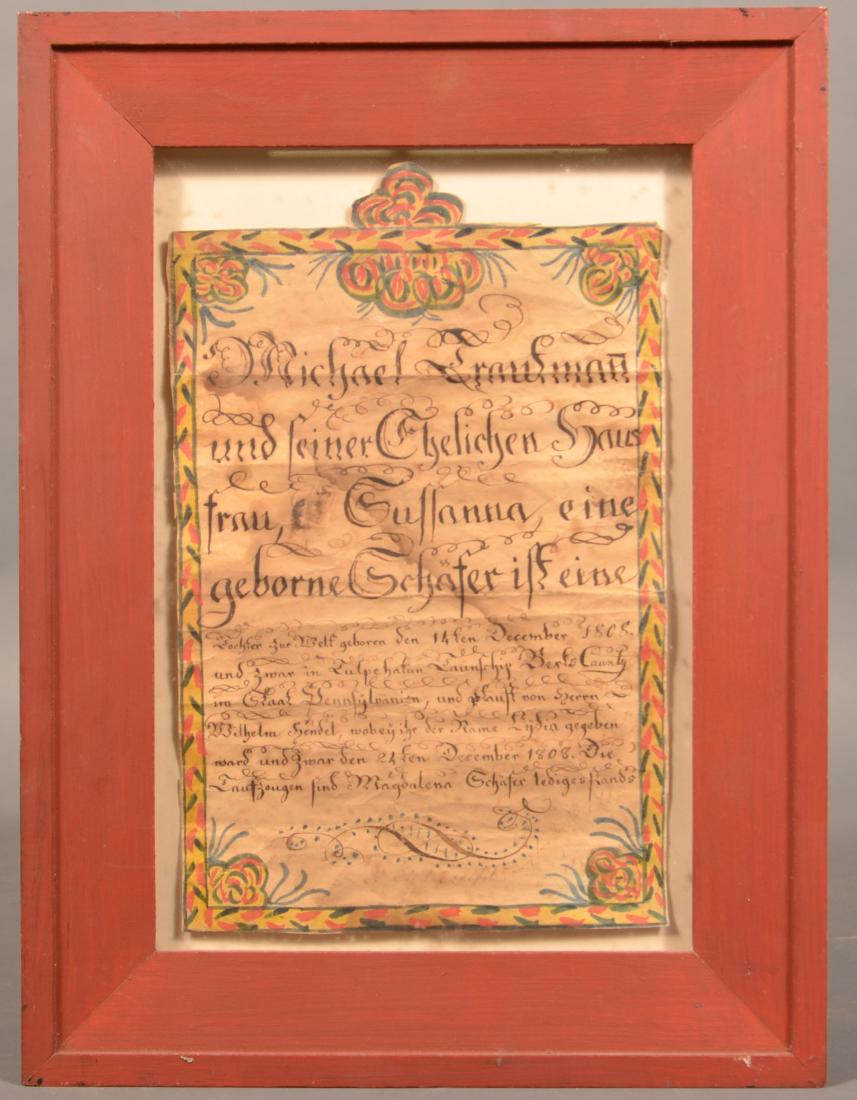 Michael Trautman̅
und seiner Ehelichen Haus
frau, Sussanna, eine
geborne Schäfer ist eine
Tochter zur Welt geboren den 14ten December 1808.
und zwar in Tulpehakun Taunschip Berks Caunty
im Staat Pennsylvanien, und getauft von Herrn
Wilhelm Hendel, wobey ihr der Name Lydia gegeben
ward und zwar den 24ten December 1808. Die
Taufzeugen sind Magdalena Schäfer ledigesstands